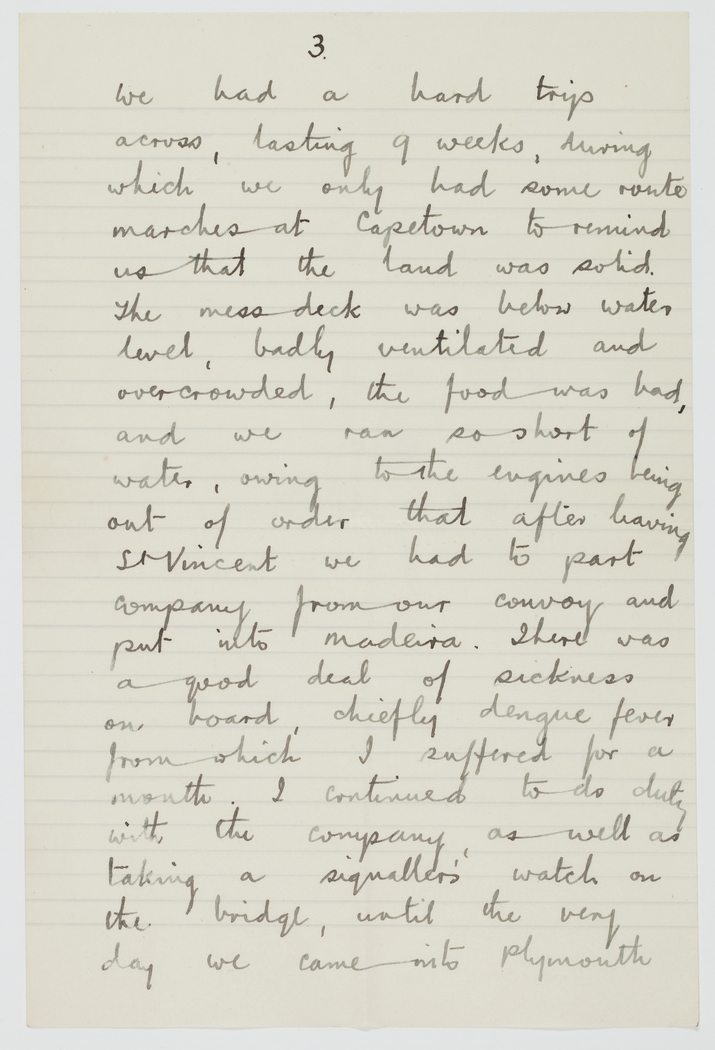 3.
We had a hard trip
across, lasting 9 weeks, during
which we only had some route
marches at Capetown to remind
us that the land was solid.
The mess deck was below water
level, badly ventilated and
overcrowded, the food was bad,
and we ran so short of
water, owing to the engines being
out of order that after having
St Vincent we had to part
company from our convoy and
put into Madeira. There was
a good deal of sickness
on board, chiefly dengue fever
from which I suffered for a
month. I continued to do duty
with the company, as well as
taking a signaller's watch on
the bridge, until the very
day we came into Plymouth